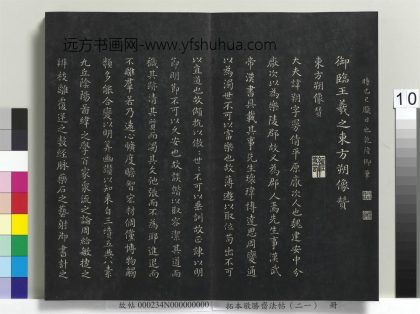 远方书画网-www.yfshuhua.com
御臨王羲之東方朔像贊
東方朔像贊
大夫諱朔字曼倩平原厭次人也魏建安中分
厭次以為樂陵郡故又為郡人焉先生事漢武
帝漢書具載其事先生瓌瑋博達思周變通
以為濁世不可以富樂也故薄遊以取位苟出不可
以直道也故頡頏以傲世傲世不可以垂訓故正諫以明
節明節不可以久安也故詼諧以取容潔其道而
穢其跡清其質而濁其文弛張而不為邪進退而
不離羣若乃遠心曠度贍智宏材倜儻博物觸
類多能合變以明筭幽贊以知來自三墳五典八索
九丘陰陽圖緯之學百家衆流之論周給敏捷之
辨枝離覆逆之數經脉藥石之藝射御書計之
10
故帖 000234N000000000
拓本敬勝齋法帖（二一） 冊